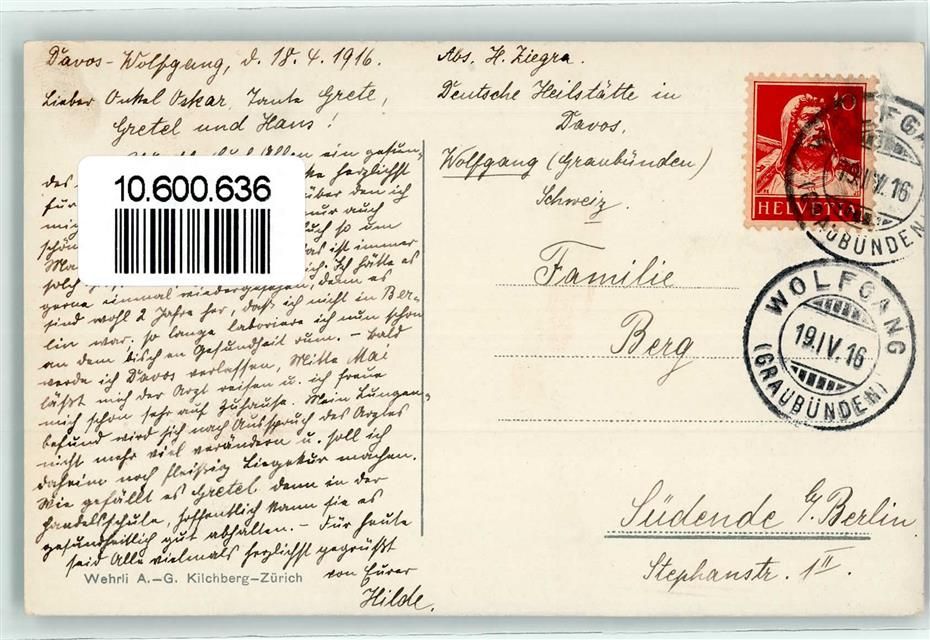 Davos-Wolfgang, d. 18.4.1916.
Lieber Onkel Oskar, Tante Grete,
Gretel und Hans!
Allen ein gesun-
des herzlichst
für über den ich
mich nur auch
schön so um
Ma das ist immer
solch ich. Ich hätte es
gerne einmal wiedergesehen, denn es
sind wohl 2 Jahre her, daß ich nicht in Ber-
lin war, so lange laboriere ich nun schon
an dem bischen Gesundheit rum. – Bald
werde ich Davos verlassen, Mitte Mai
läßt mich der Arzt reisen u. ich freue
mich schon sehr auf zuhause. Mein Lungen-
befund wird sich nach Ausspruch des Arztes
nicht mehr viel verändern u. soll ich
daheim noch fleißig Liegekur machen.
Wie gefällt es Gretel denn in der
Handelsschule, hoffentlich kann sie es
gesundheitlich gut abhalten. – Für heute
seid Alle vielmals herzlichst gegrüßt
von Eurer
Hilde.
10.600.636
Wehrli A.-G. Kilchberg-Zürich
Abs. H. Ziegra.
Deutsche Heilstätte in
Davos,
Wolfgang (Graubünden)
Schweiz.
Familie
Berg
Südende b/Berlin
Stephanstr. 1II.
10
HELVETIA
WOLFGANG
19.IV.16
(GRAUBÜNDEN)
WOLFGANG
19.IV.16
(GRAUBÜNDEN)